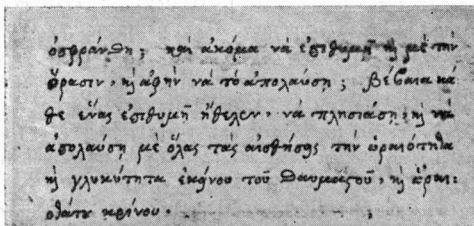 ὀσφράνθη; καὶ ἀκόμα νὰ ἐπιθυμῇ καὶ μὲ τὴν
ὅρασιν, καὶ ἀφὴν νὰ τὸ ἀπολαύσῃ; βέβαια κά
θε ἕνας ἐπιθυμῇ ἤθελεν νὰ πλησιάσῃ, καὶ νὰ
ἀπολαύσῃ μὲ ὅλας τὰς αἰσθήσης τὴν ὡραιότητα
καὶ γλυκύτητα ἐκήνου τοῦ θαυμαστοῦ, καὶ ὡραι
οτάτου κρίνου.